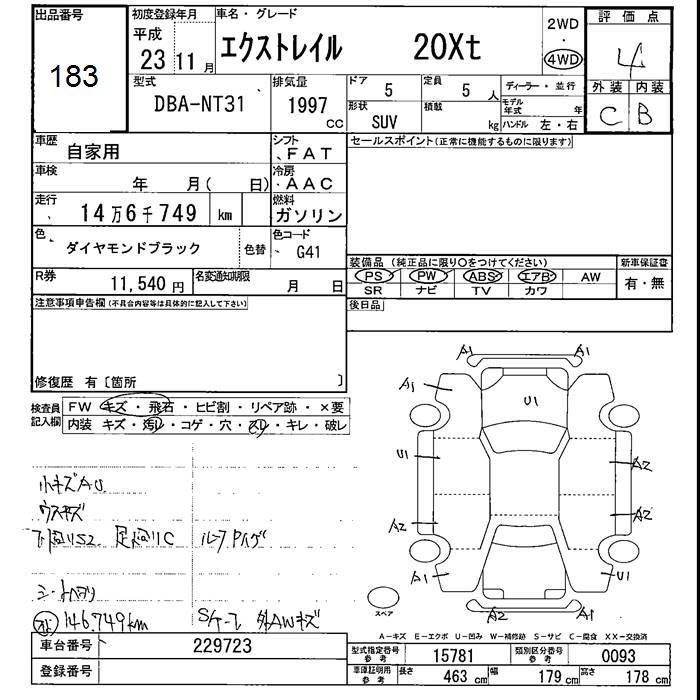 出品番号
183
初度登録年月
平成
23 11月
車名・グレード
エクストレイル 20Xt
2WD
・
4WD
評価点
4
外装 内装
C B
型式
DBA-NT31
排気量
1997 CC
ドア
5
定員
5 人
形状
SUV
積載
kg
ディーラー・並行
モデル年式 年
ハンドル 左・右
車歴
自家用
シフト
FAT
車検
年 月( 日)
冷房
AAC
走行
14万6千749 km
燃料
ガソリン
色
ダイヤモンドブラック
色替
色コード
G41
R券
11,540 円
名変通知期限
月 日
セールスポイント(正常に機能するものに限ります)
装備品 (純正品に限り○をつけてください)
PS PW ABS エアB AW
SR ナビ TV カワ
新車保証書
有・無
後日品
注意事項申告欄(不具合内容等は具体的に記入して下さい)
修復歴 有〔箇所 〕
検査員記入欄
FW キズ・飛石・ヒビ割・リペア跡・×要
内装 キズ・汚レ・コゲ・穴・スレ・キレ・破レ
小キズAU
ウスキズ
下廻りS2 足廻りC ルーフ
146,749km 外AWキズ
A1 A1
A1 U1
U1 A2
A2 A2
A1 U1
A2 A1
スペア
A-キズ E-エクボ U-凹み W-補修跡 S-サビ C-腐食 XX-交換済
車台番号
229723
登録番号
型式指定番号 参考
15781
類別区分番号 参考
0093
車庫証明用 参考
長さ 463 cm 幅 179 cm 高さ 178 cm